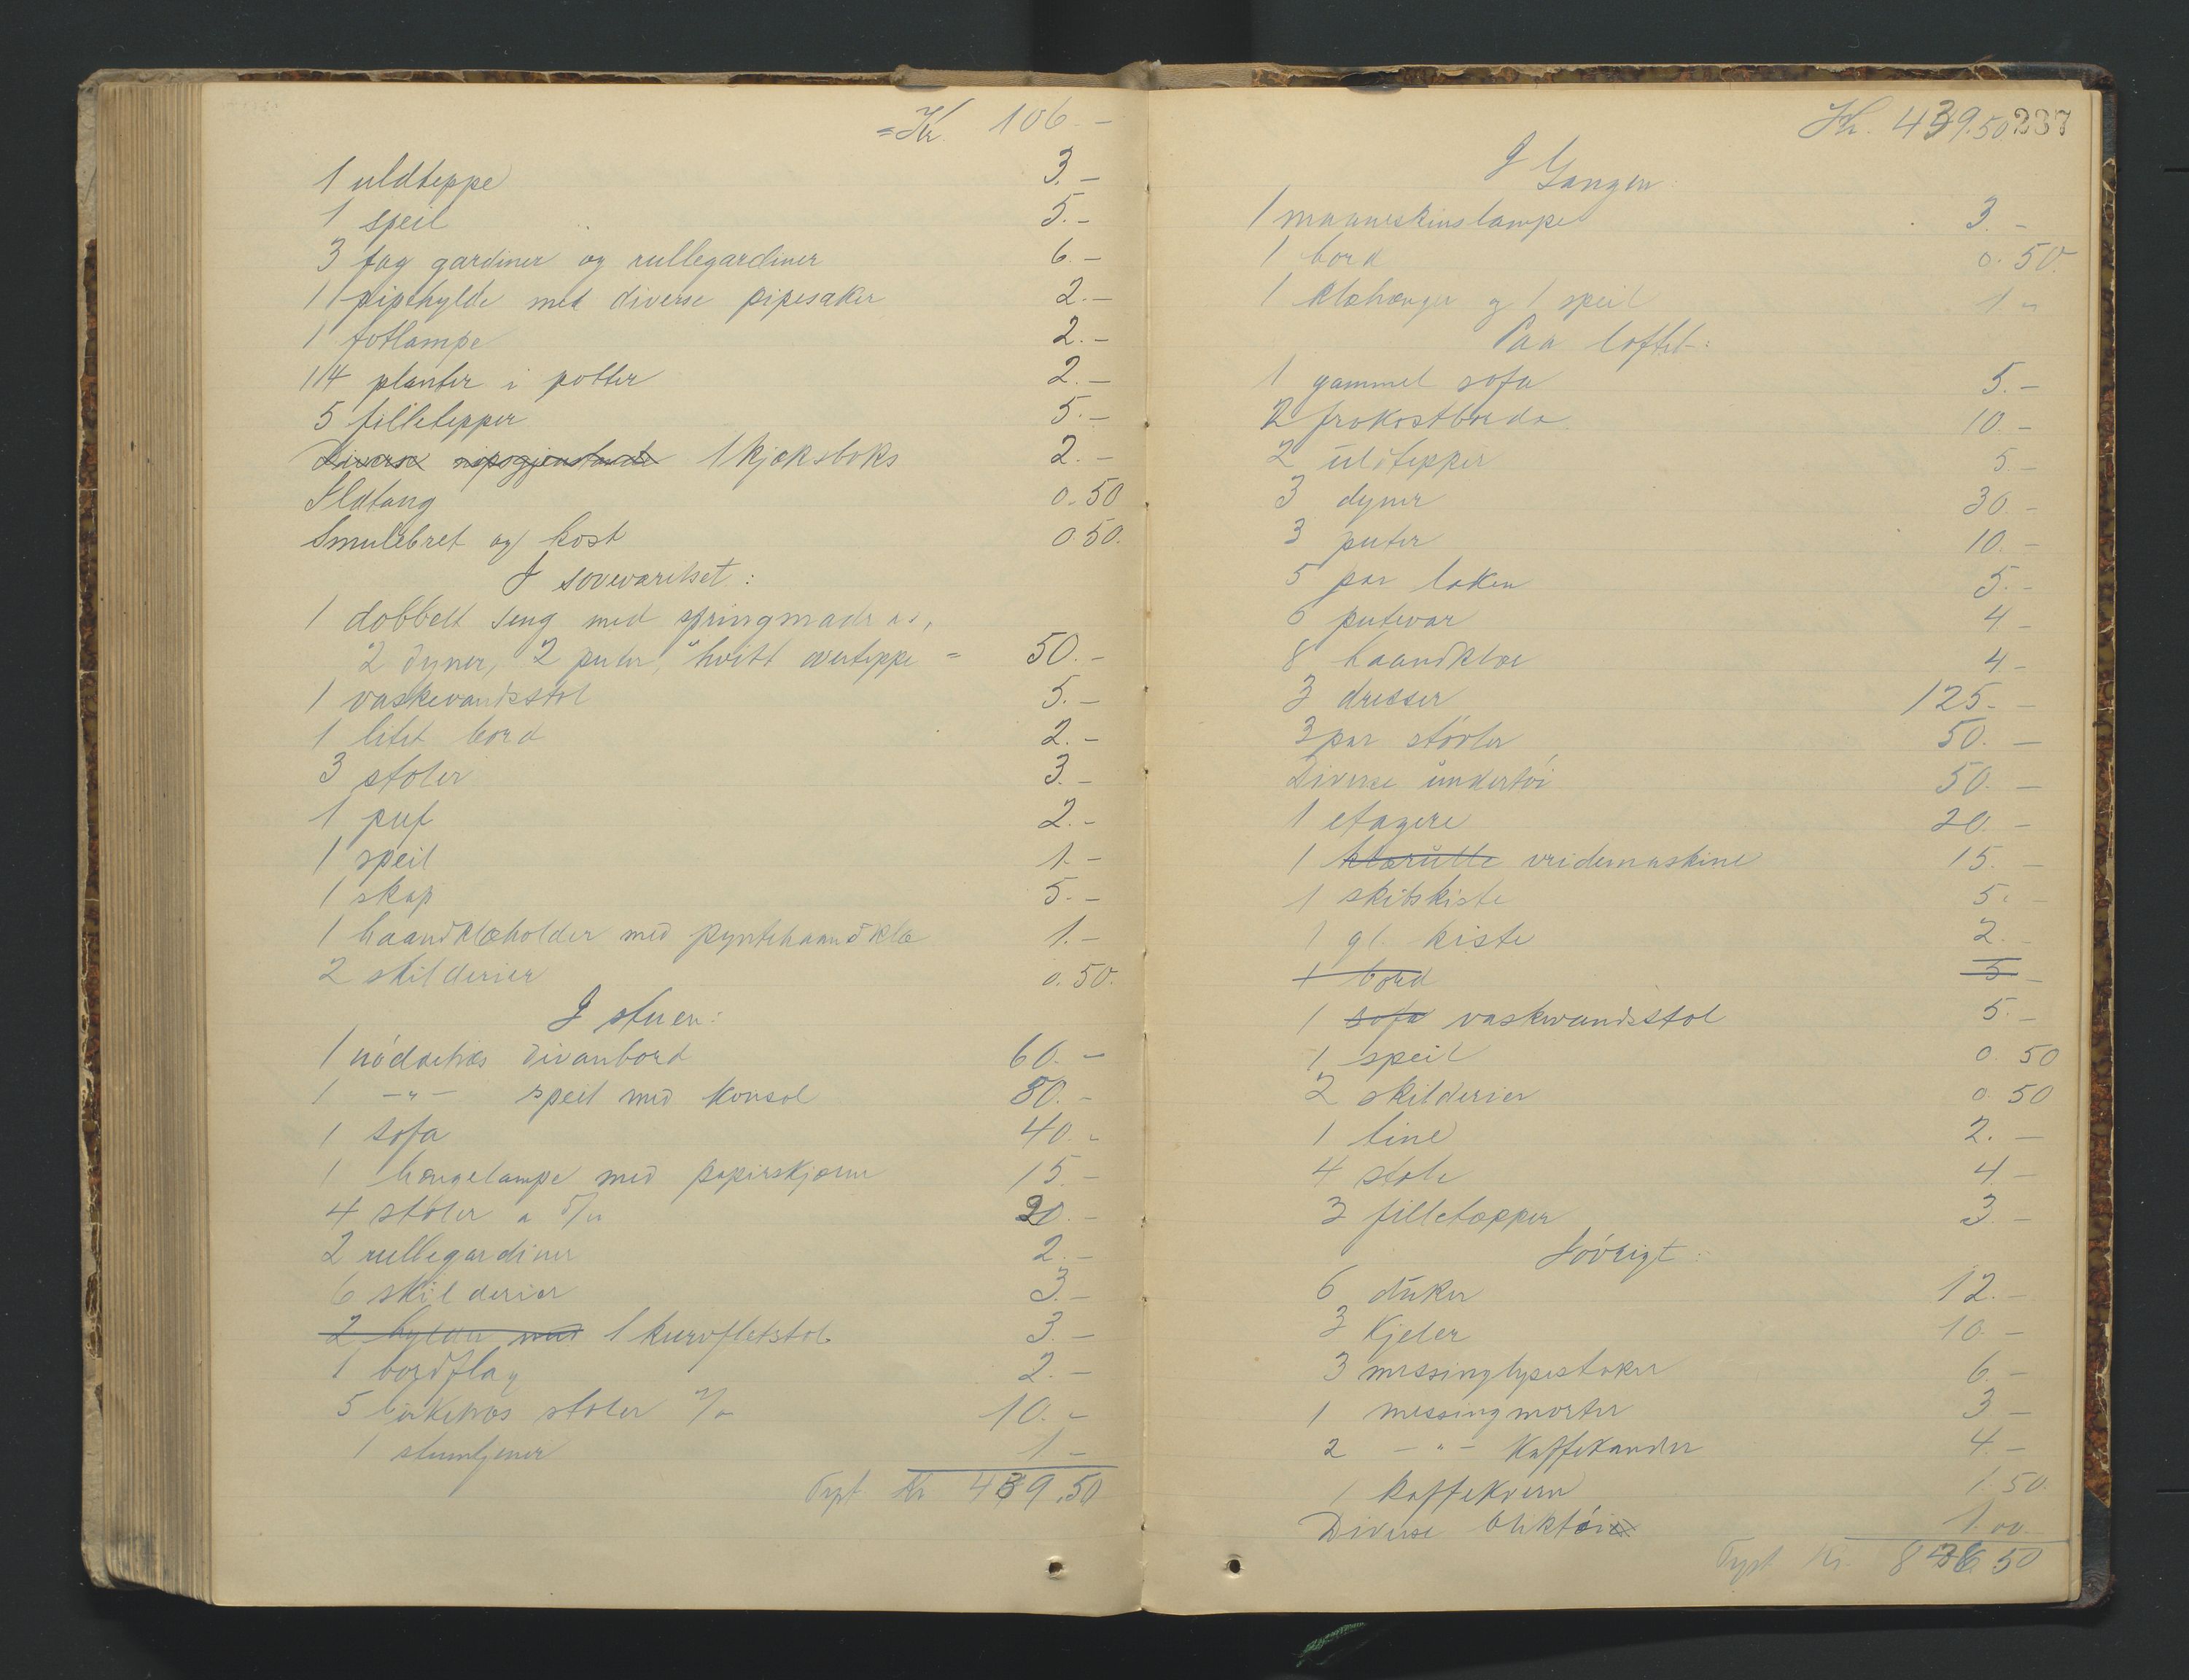 = Kr. 106.-
1 uldteppe 3.-
1 speil 5.-
3 fag gardiner og rullegardiner 6.-
1 pipehylde med diverse pipesaker 2.-
1 fotlampe 2.-
14 planter i potter 2.-
5 filletepper 5.-
Diverse nipsgjenstande 1 kjæksboks 2.-
Ildtang 0.50
Smulebret og kost 0.50.
I soveværelset:
1 dobbelt seng med springmadras,
2 dyner, 2 puter, hvitt overteppe = 50.-
1 vaskevandsstol 5.-
1 litet bord 2.-
3 stoler 3.-
1 puf 2.-
1 speil 1.-
1 skap 5.-
1 haandklæholder med pyntehaandklæ 1.-
2 skilderier 0.50.
I stuen:
1 nöddetræs divanbord 60.-
1 -"- speil med konsol 80.-
1 sofa 40.-
1 hængelampe med papirskjærm 15.-
4 stoler a 5/- 20.-
2 rullegardiner 2.-
6 skilderier 3.-
2 hylder med 1 kurvfletstol 3.-
1 bordflag 2.-
5 birketræs stoler 2/- 10.-
1 stumtjener 1-
Trpt. Kr 439.50
Kr. 439.50 237
I Gangen:
1 maaneskinslampe 3.-
1 bord 0.50.
1 klæhænger og 1 speil 1 "
Paa loftet:
1 gammel sofa 5.-
2 frokostborda 10.-
2 uldtepper 5.-
3 dyner 30.-
3 puter 10.-
5 par laken 5.-
6 putevar 4-
8 haandklær 4-
3 dresser 125.-
3 par stövler 50.-
Diverse undertöi 50.-
1 etagere 20.-
1 klærulle vridemaskine 15.-
1 skibskiste 5.-
1 gl. kiste 2.-
1 bord 5-
1 sofa vaskevandsstol 5.-
1 speil 0.50
2 skilderier 0.50
1 tine 2.-
4 stole 4.-
3 filletæpper 3.-
Iövrigt:
6 duker 12.-
3 Kjeler 10.-
3 messinglysestaker 6.-
1 messingmorter 3-
2 -"- Kaffekander 4.-
1 kaffekvern 1.50.
Diverse bliktöie 1.00
Trpt Kr. 836.50